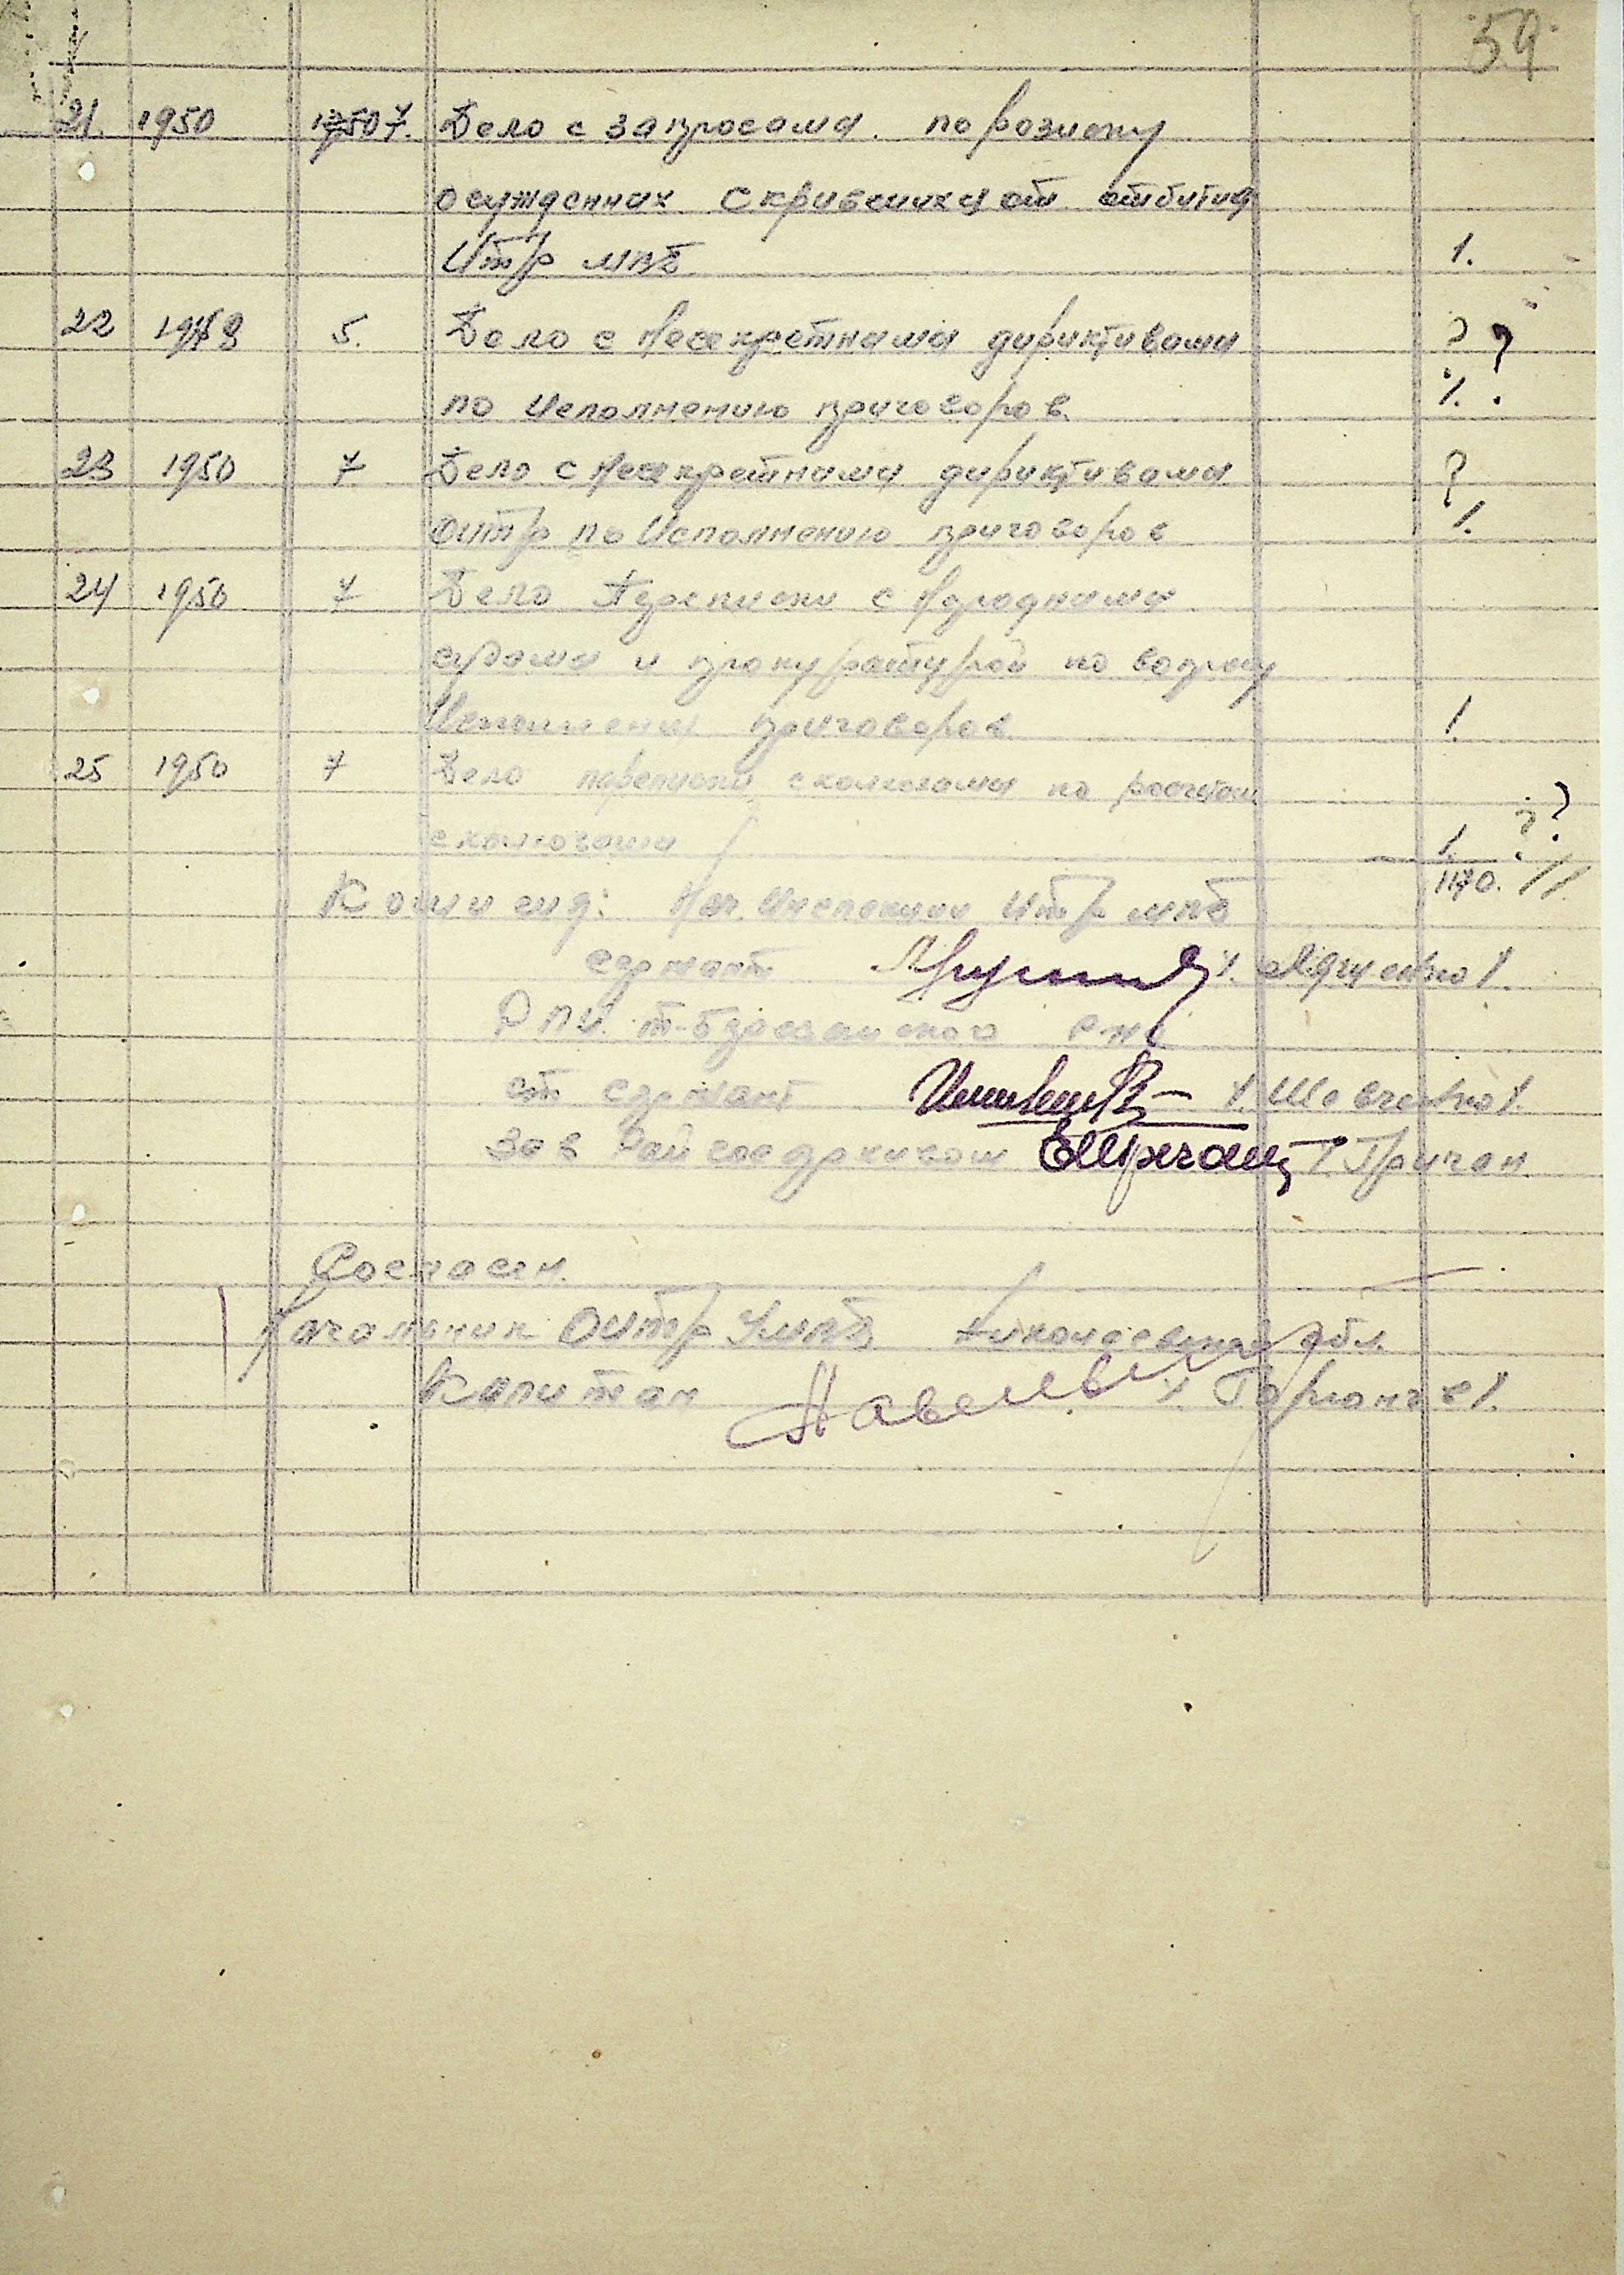 59
21. 1950 7. Дело с запросами по розиску
осужденних скрившихся от отбития
ИТР МВД 1.
22 1948 5. Дело с несекретними дириктивами ? ?
по исполнению приговоров 1.
23 1950 7 Дело с несекретними дириктивами ?
ОИТР по исполнению приговоров 1.
24 1950 7 Дело переписки с народними
судами и прокуратурой по вопросу
исполнения приговоров 1.
25 1950 7 Дело переписки с колхозами по расчетам ?
с колхозами 1. ?
1170.
Комисия: Нач. Инспекции ИТР МВД
сержант
Т-Березанского
ст сержант /Шевченко/.
Зав Райгосархивом /Григан
Согласен.
Начальник ОИТР УМВД Николаевской обл.
Капитан